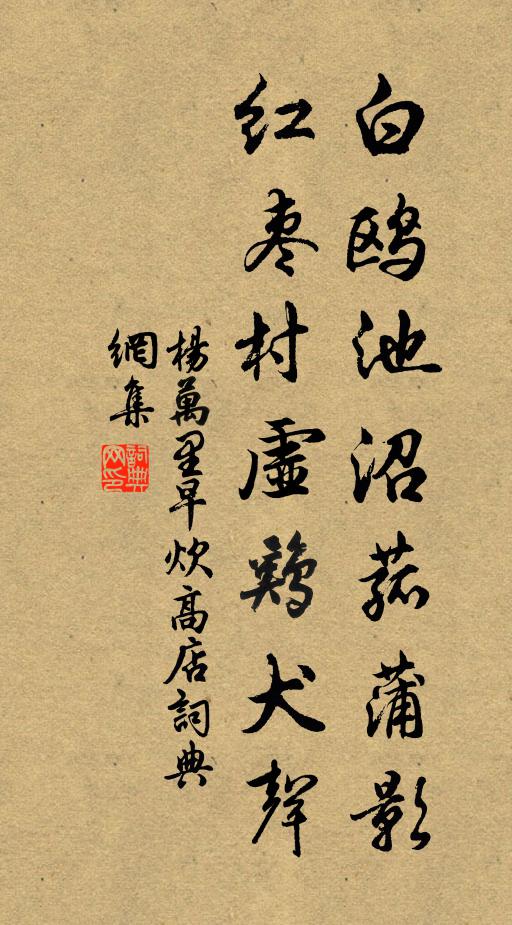 白鷗池沼菰蒲影
紅棗村虛鷄犬聲
楊萬里早炊高店詞典
網集
詞典
网印